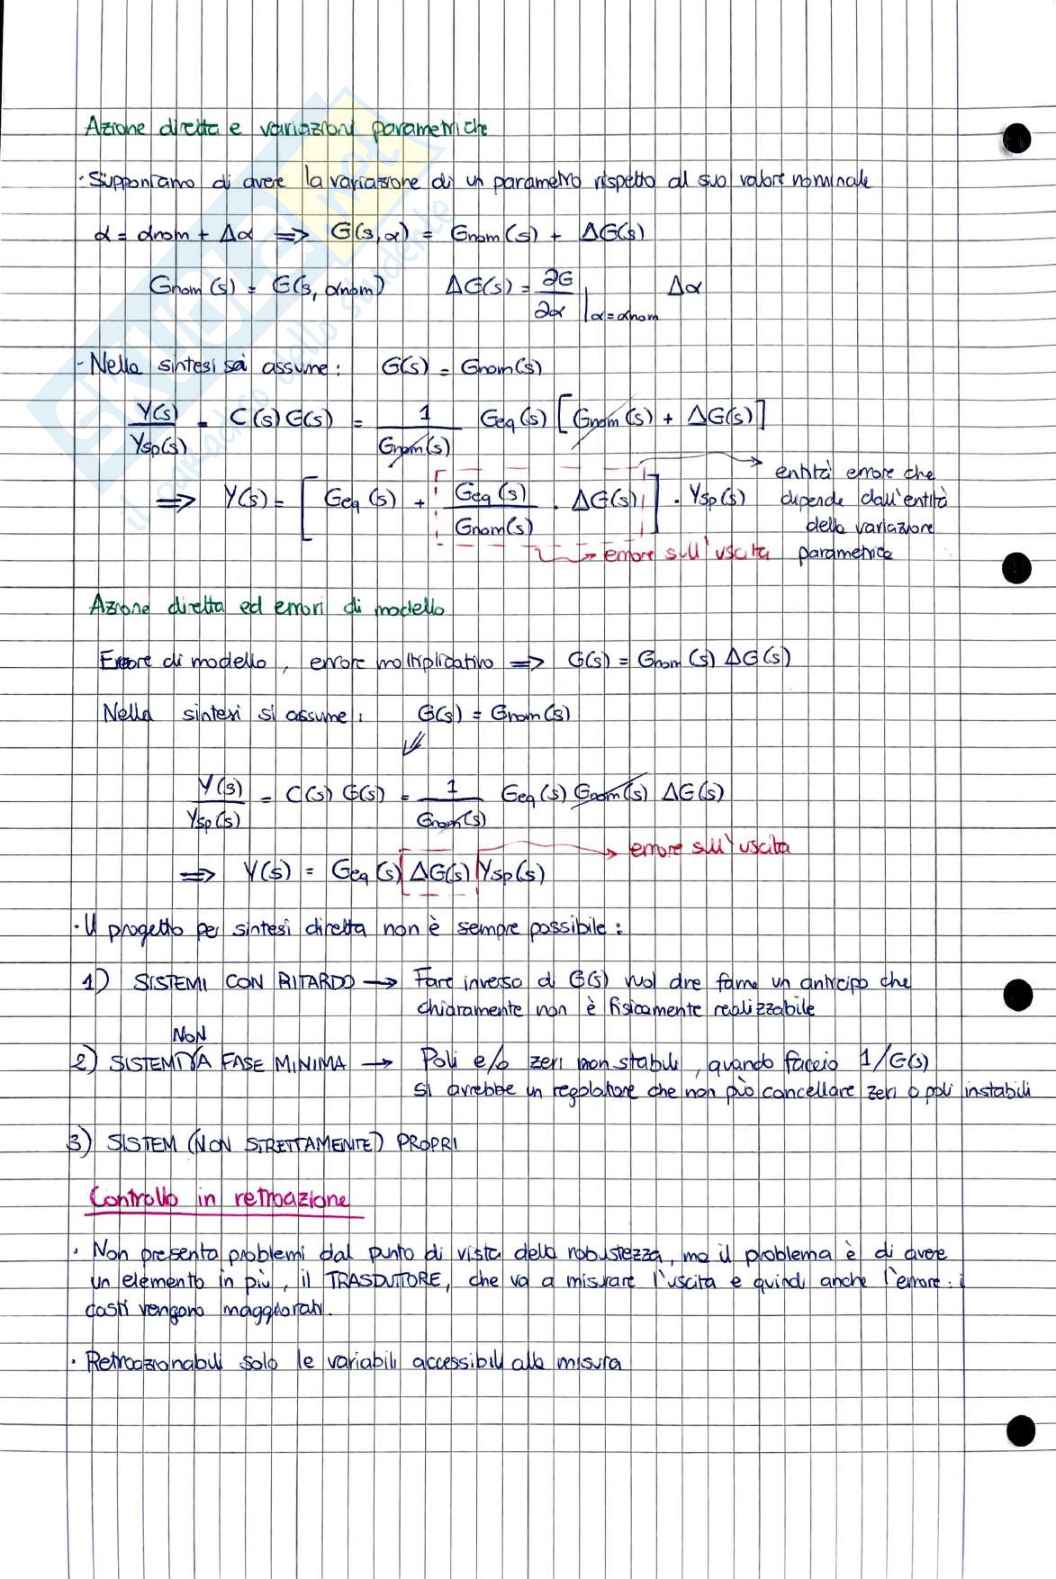 Azione diretta e variazioni parametriche
· Supponiamo di avere la variazione di un parametro rispetto al suo valore nominale
α = αnom + Δα ⟹ G(s,α) = Gnom(s) + ΔG(s)
Gnom(s) = G(s, αnom)   ΔG(s) = ∂G/∂α |α=αnom Δα
- Nella sintesi si assume: G(s) = Gnom(s)
Y(s)/Ysp(s) = C(s)G(s) = 1/Gnom(s) Geq(s) [Gnom(s) + ΔG(s)]
⟹ Y(s) = [Geq(s) + Geq(s)/Gnom(s) · ΔG(s)] · Ysp(s)
entità errore che
dipende dall'entità
della variazione
parametrica
errore sull'uscita
Azione diretta ed errori di modello
Errore di modello, errore moltiplicativo ⟹ G(s) = Gnom(s) ΔG(s)
Nella sintesi si assume: G(s) = Gnom(s)
⇓
Y(s)/Ysp(s) = C(s) G(s) = 1/Gnom(s) Geq(s) Gnom(s) ΔG(s)
errore sull'uscita
⟹ Y(s) = Geq(s) ΔG(s) Ysp(s)
· Il progetto per sintesi diretta non è sempre possibile:
1) SISTEMI CON RITARDO → Fare inverso di G(s) vuol dire farne un anticipo che
chiaramente non è fisicamente realizzabile
NON
2) SISTEMI A FASE MINIMA → Poli e/o zeri non stabili, quando faccio 1/G(s)
si avrebbe un regolatore che non può cancellare zeri o poli instabili
3) SISTEM (NON STRETTAMENTE) PROPRI
Controllo in retroazione
· Non presenta problemi dal punto di vista della robustezza, ma il problema è di avere
un elemento in più, il TRASDUTORE, che va a misurare l'uscita e quindi anche l'errore: i
costi vengono maggiorati.
· Retroazionabili solo le variabili accessibili alla misura